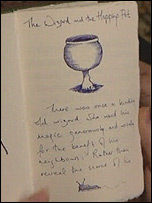 The Wizard and the Hopping Pot
There was once a kindly
old wizard who used his
magic generously and wisely
for the benefit of his
neighbours. Rather than
reveal the source of his